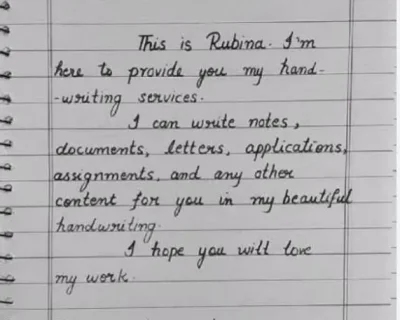 This is Rubina. I'm
here to provide you my hand-
-writing services.
I can write notes,
documents, letters, applications,
assignments, and any other
content for you in my beautiful
handwriting.
I hope you will love
my work.